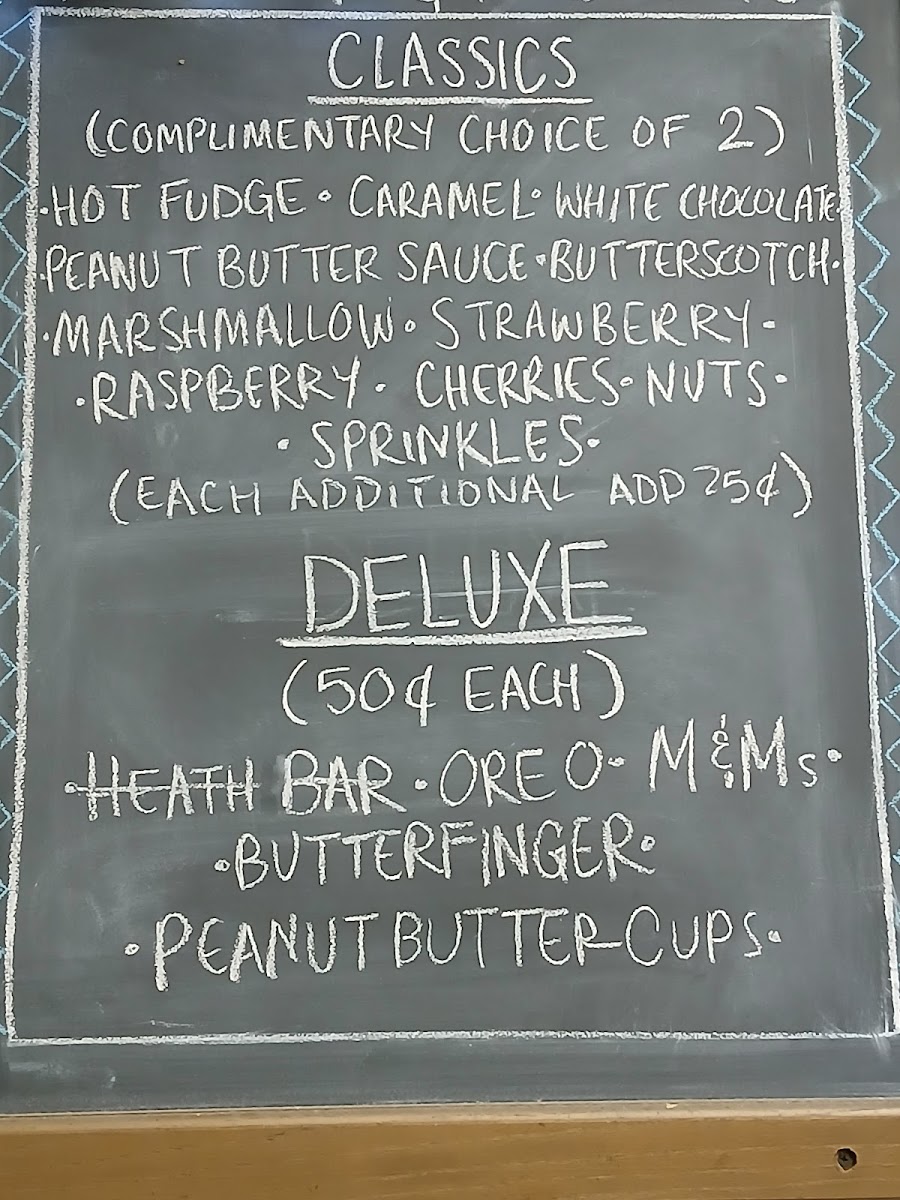 CLASSICS
(COMPLIMENTARY CHOICE OF 2)
•HOT FUDGE • CARAMEL• WHITE CHOCOLATE•
•PEANUT BUTTER SAUCE•BUTTERSCOTCH•
•MARSHMALLOW• STRAWBERRY•
•RASPBERRY• CHERRIES•NUTS•
• SPRINKLES•
(EACH ADDITIONAL ADD 25¢)
DELUXE
(50¢ EACH)
•HEATH BAR • OREO• M&Ms•
•BUTTERFINGER•
•PEANUT BUTTER CUPS•